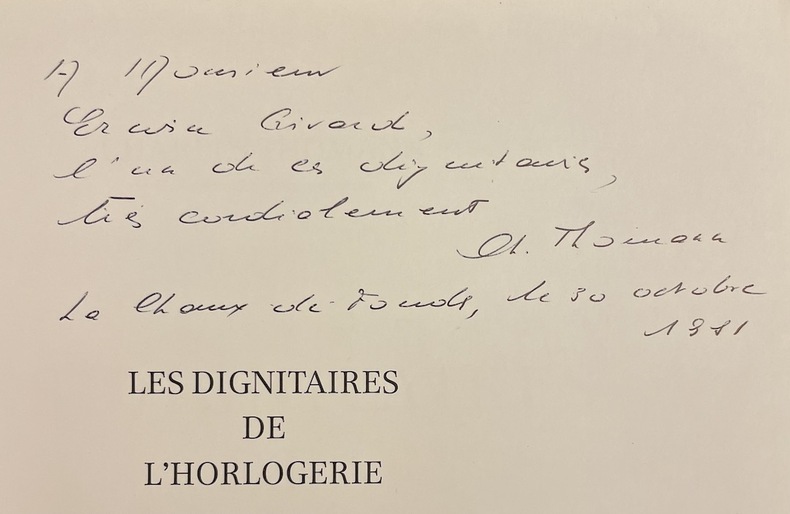 A Monsieur
Erwin Girard,
l'un de ces dignitaires,
très cordialement
Ch. Thomann
La Chaux-de-Fonds, le 30 octobre
1981
LES DIGNITAIRES
DE
L'HORLOGERIE